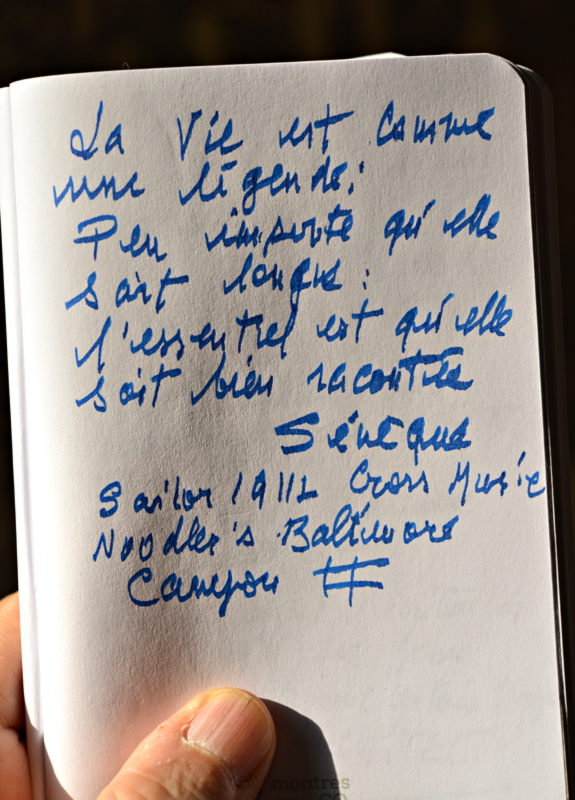 La Vie est Comme
une légende:
Peu importe qu'elle
soit longue:
l'essentiel est qu'elle
soit bien racontée
Sénèque
Sailor 1911L Cross Music
Noodler's Baltimore
Canyon #
montres